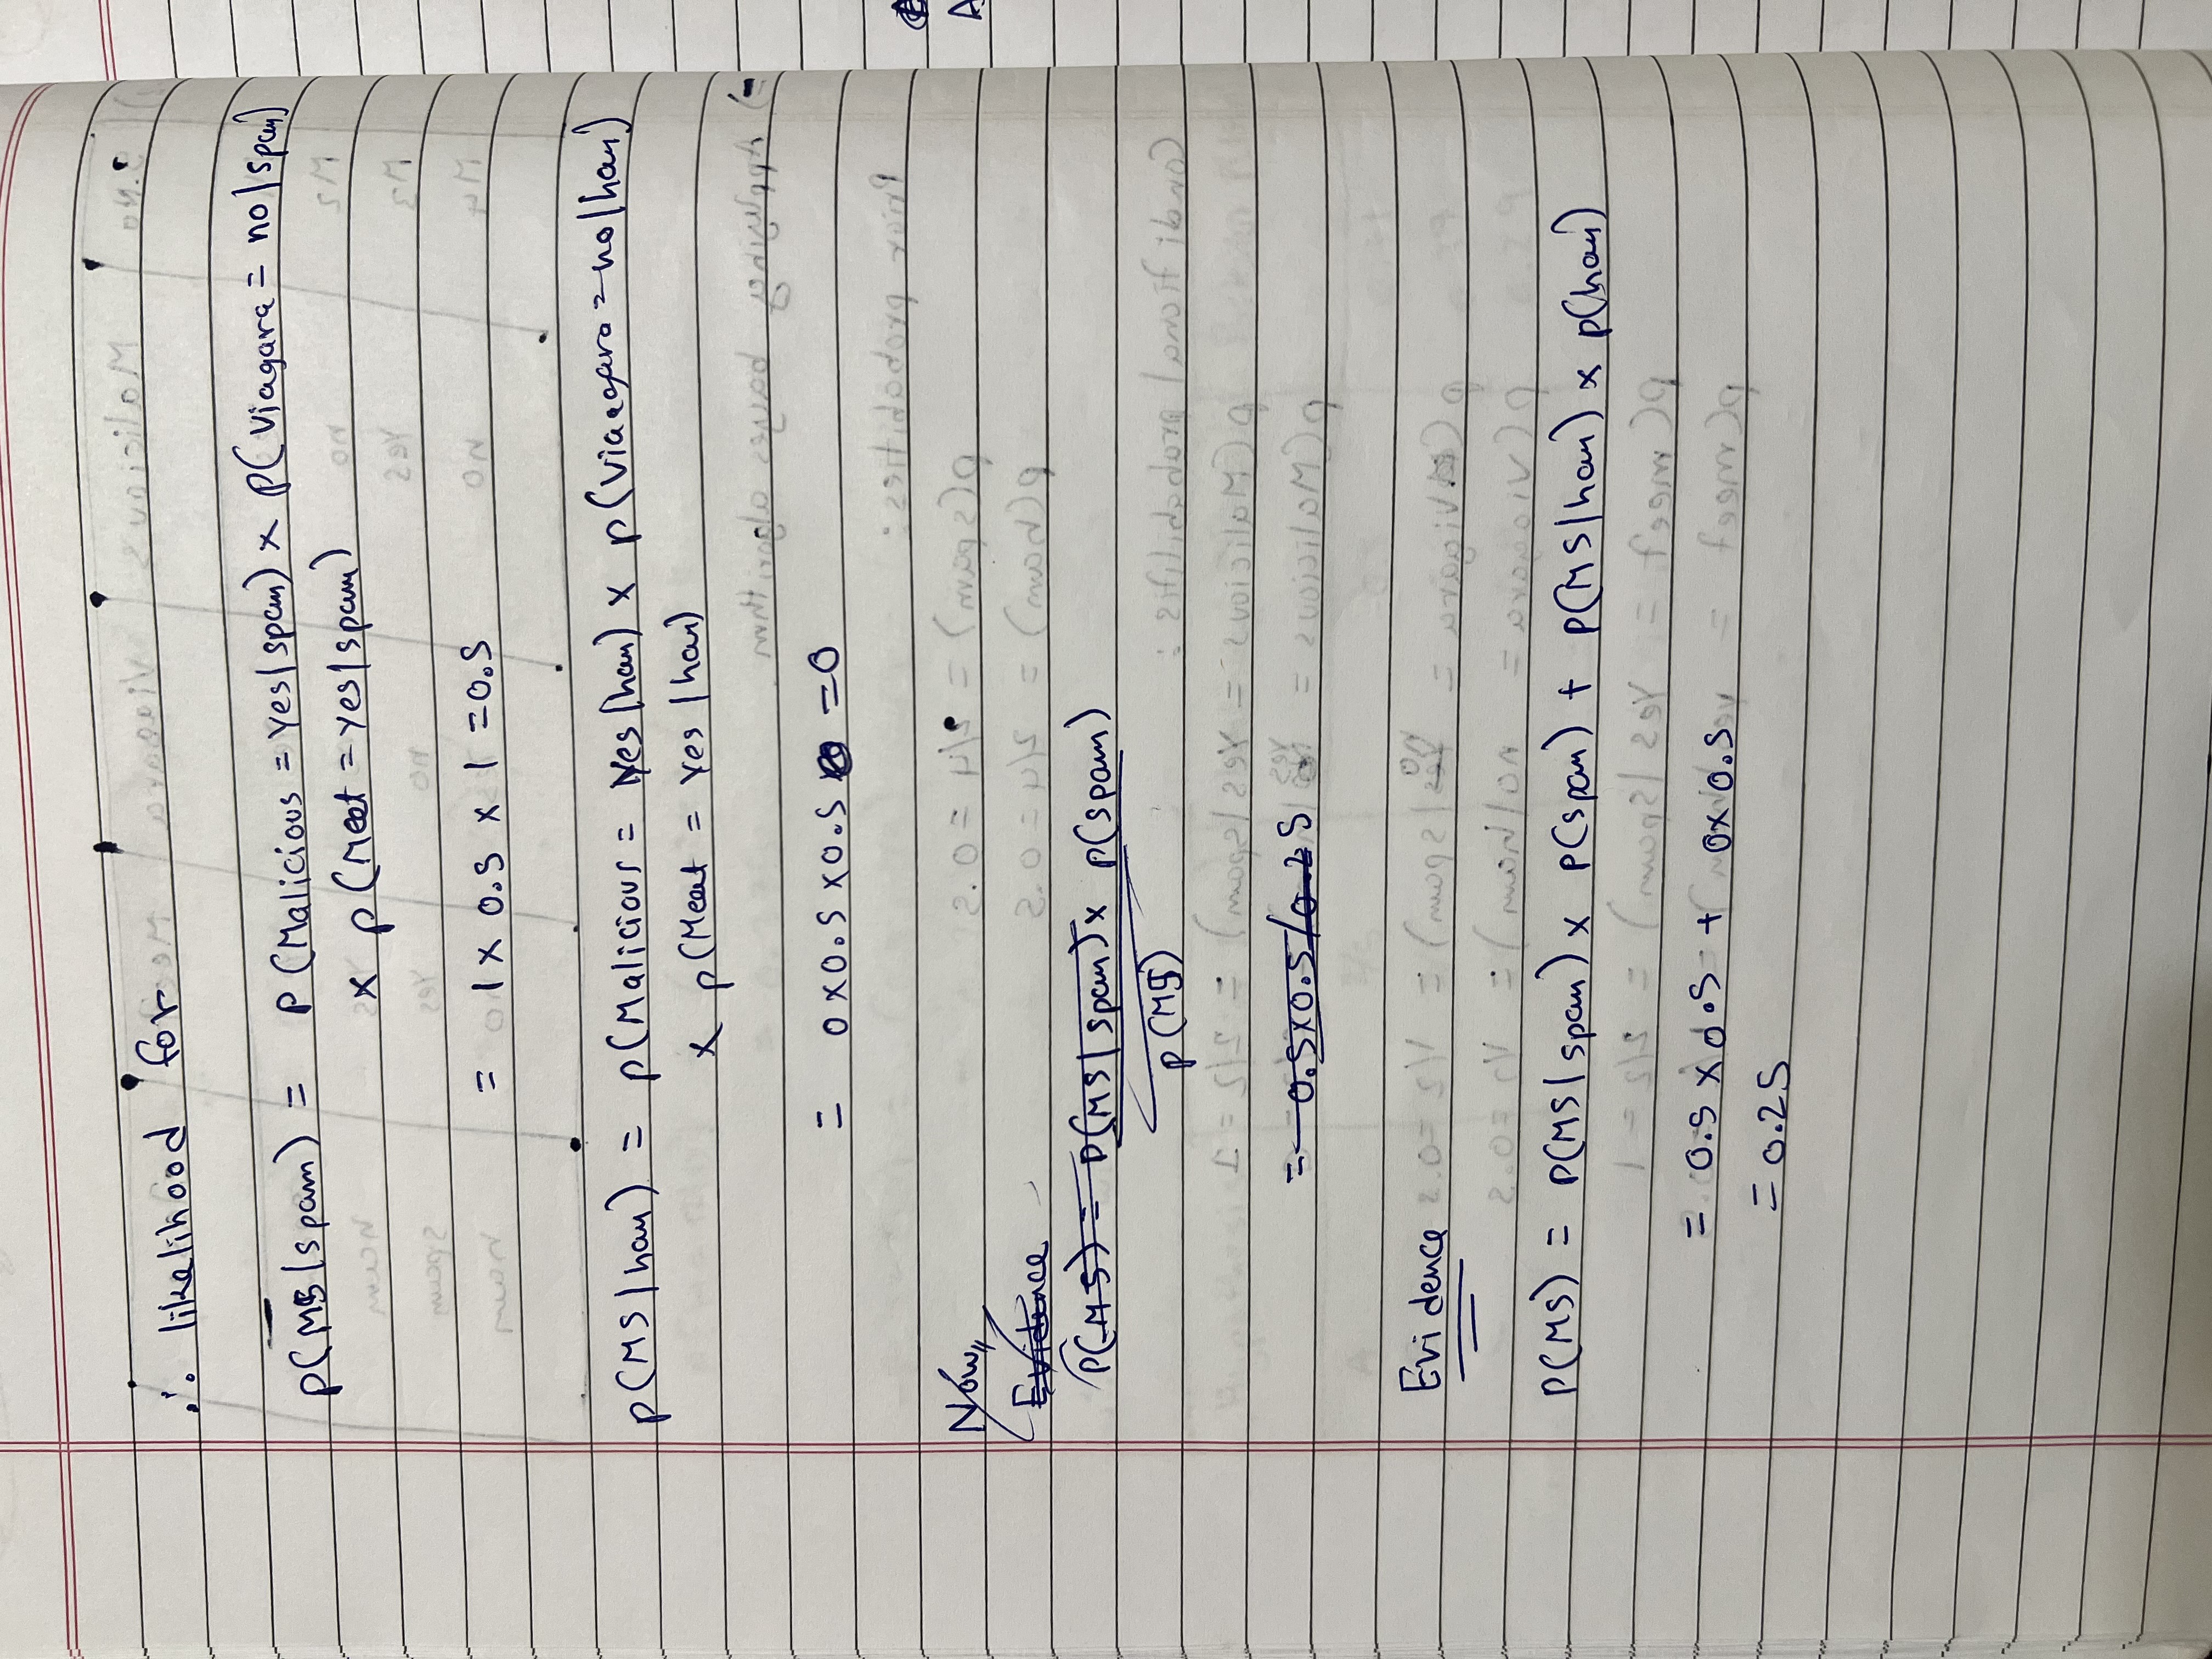 ∴ likelihood for
P(M5/spam) = P(Malicious = Yes/spam) x P(Viagara = no/spam)
x P(Meet = yes/spam)
= 1 x 0.5 x 1 = 0.5
P(M5/ham) = P(Malicious = Yes/ham) x P(Viaagara = no/ham)
x P(Meet = Yes/ham)
= 0 x 0.5 x 0.5 = 0
Now,,
Evidence
P(M5) = P(M5/spam) x P(spam)
P(M5)
= 0.5x0.5/0.25
Evidence
P(M5) = P(M5/spam) x P(spam) + P(M5/ham) x P(ham)
= 0.5 x 0.5 + 0x 0.5
= 0.25